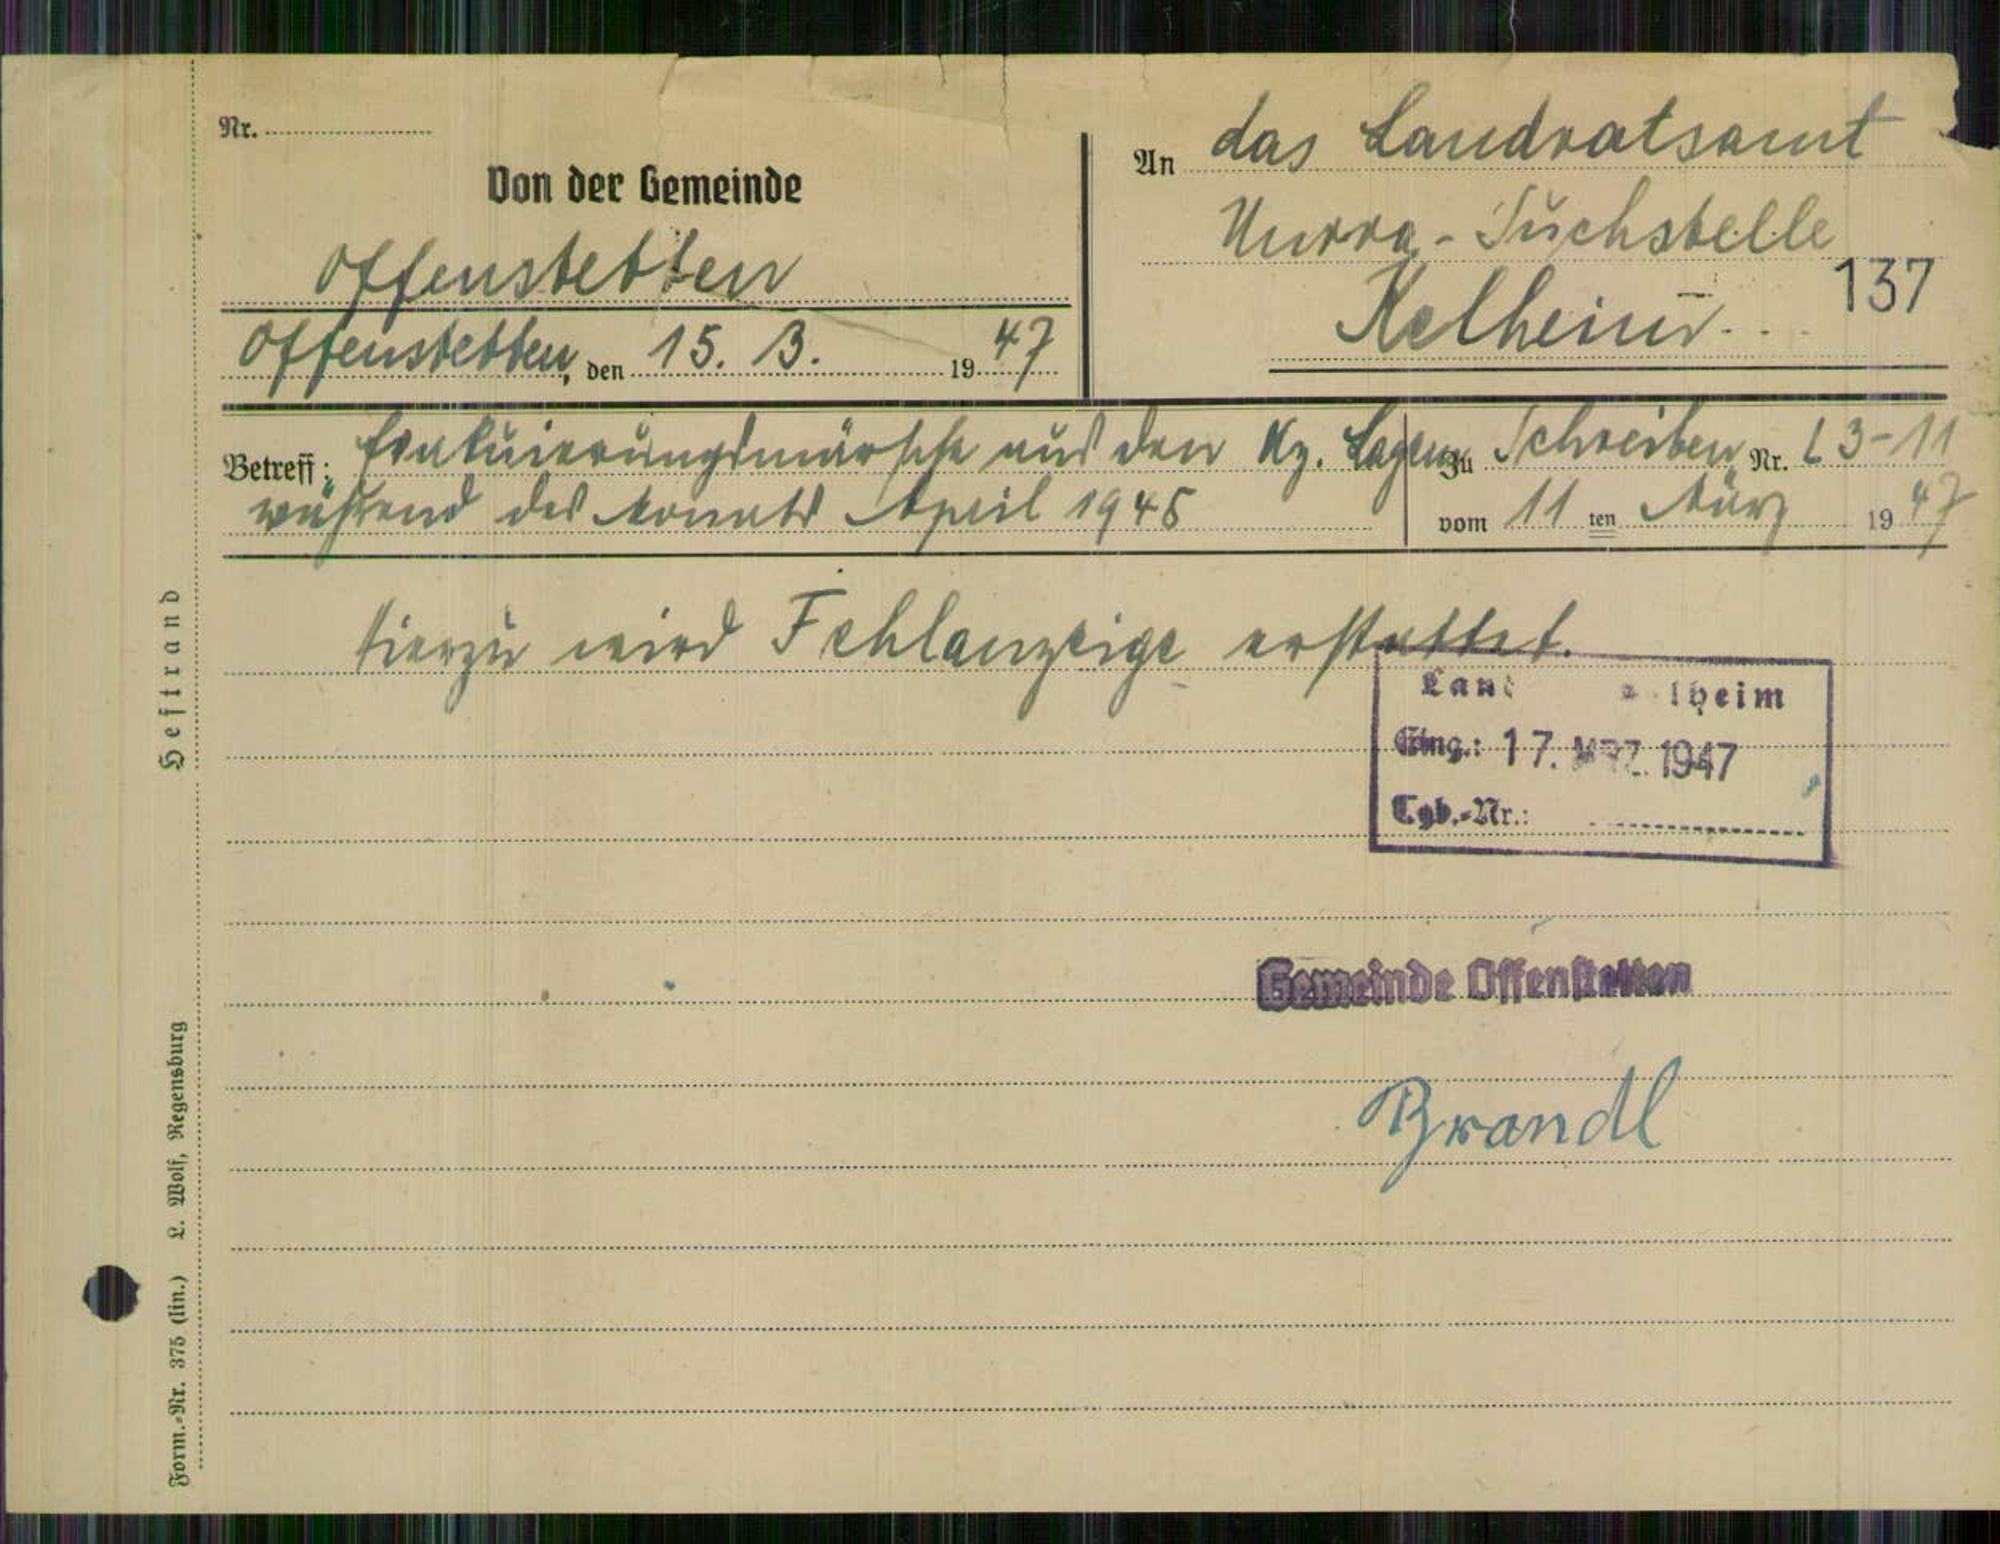 Nr.
Von der Gemeinde
Offenstetten
Offenstetten, den 15. 3. 1947
An das Landratsamt
Unrra-Suchstelle
Kelheim
137
Betreff: Evakuierungsmärsche aus den Kz. Lagern
während des Monats April 1945
Zu Schreiben Nr. L 3-11
vom 11 ten März 1947
Hierzu wird Fehlanzeige erstattet.
Land lheim
Eing.: 17. MRZ. 1947
Tgb.-Nr.:
Gemeinde Offenstetten
Brandl
Heftrand
Form.-Nr. 375 (lin.) L. Wolf, Regensburg